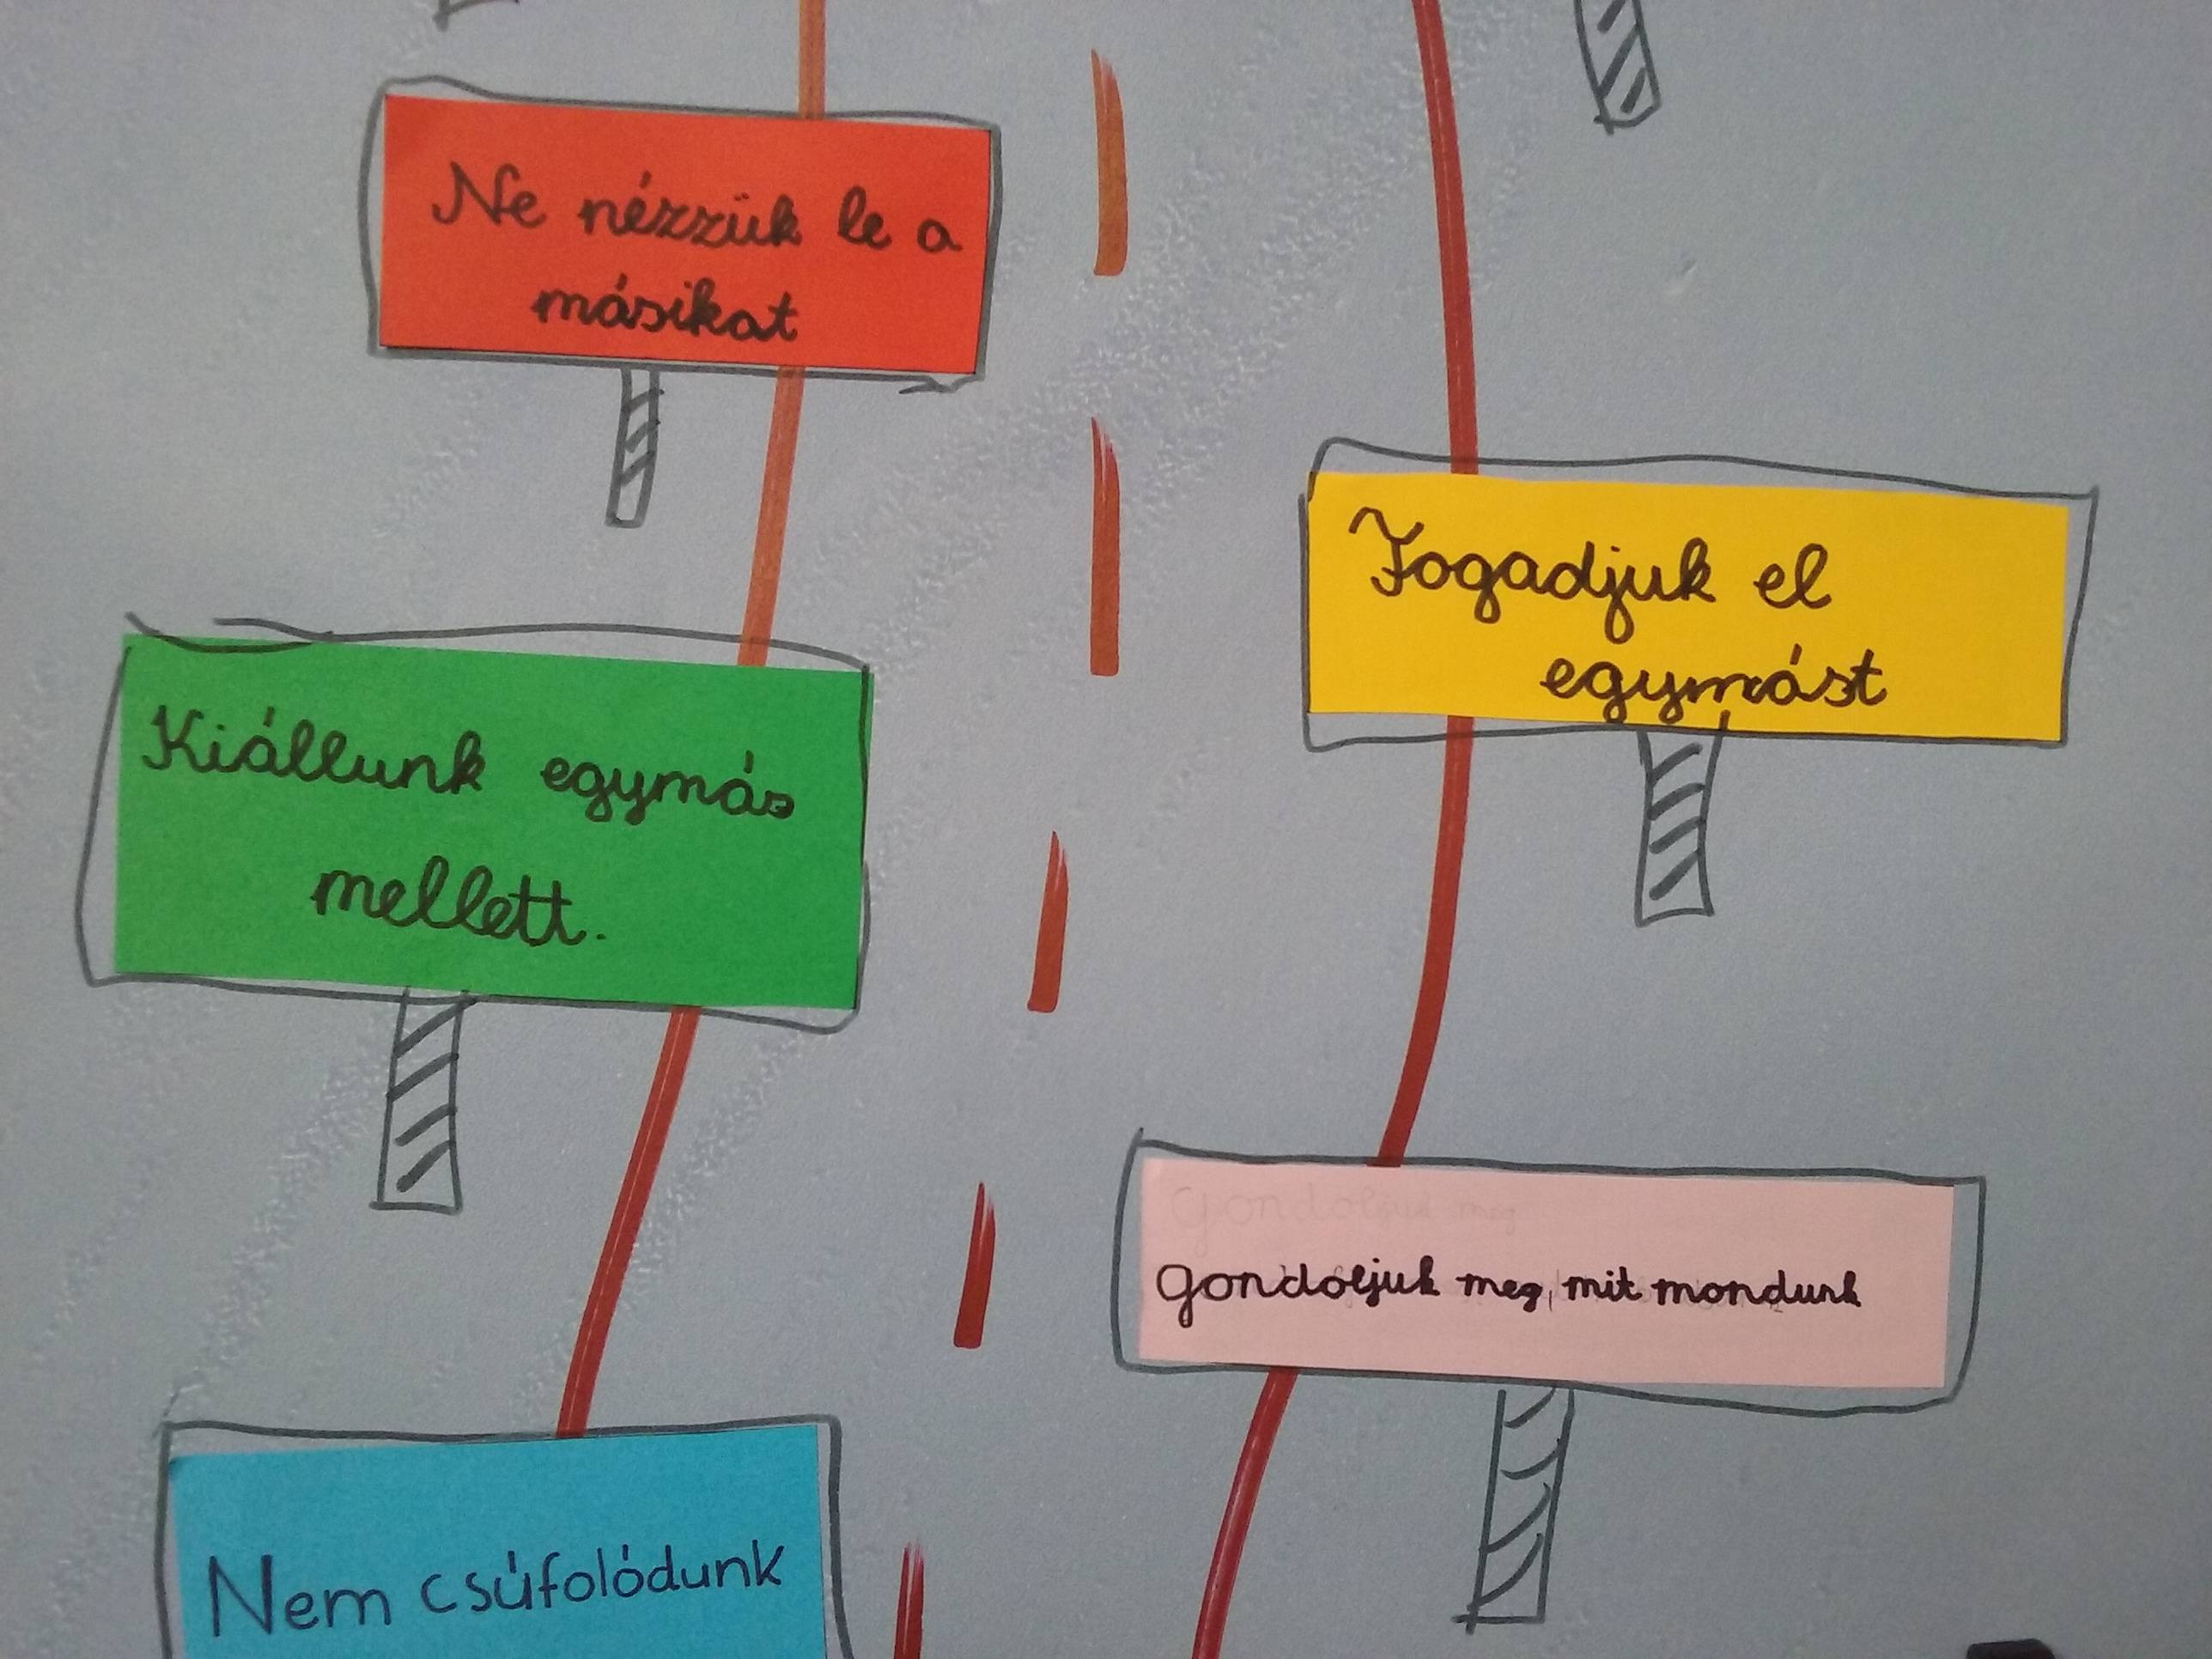 Ne nézzük le a
másikat
Fogadjuk el
egymást
Kiállunk egymás
mellett.
Gondoljuk meg
Gondoljuk meg, mit mondunk
Nem csúfolódunk